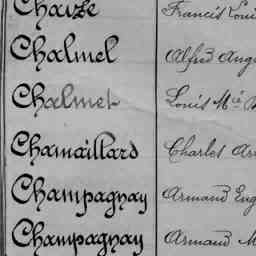 Chaize Francis Loui
Chalmel Alfred Aug
Chalmet Louis Mie
Chamaillard Charles Ar
Champagnay Armand Eug
Champagnay Armand M